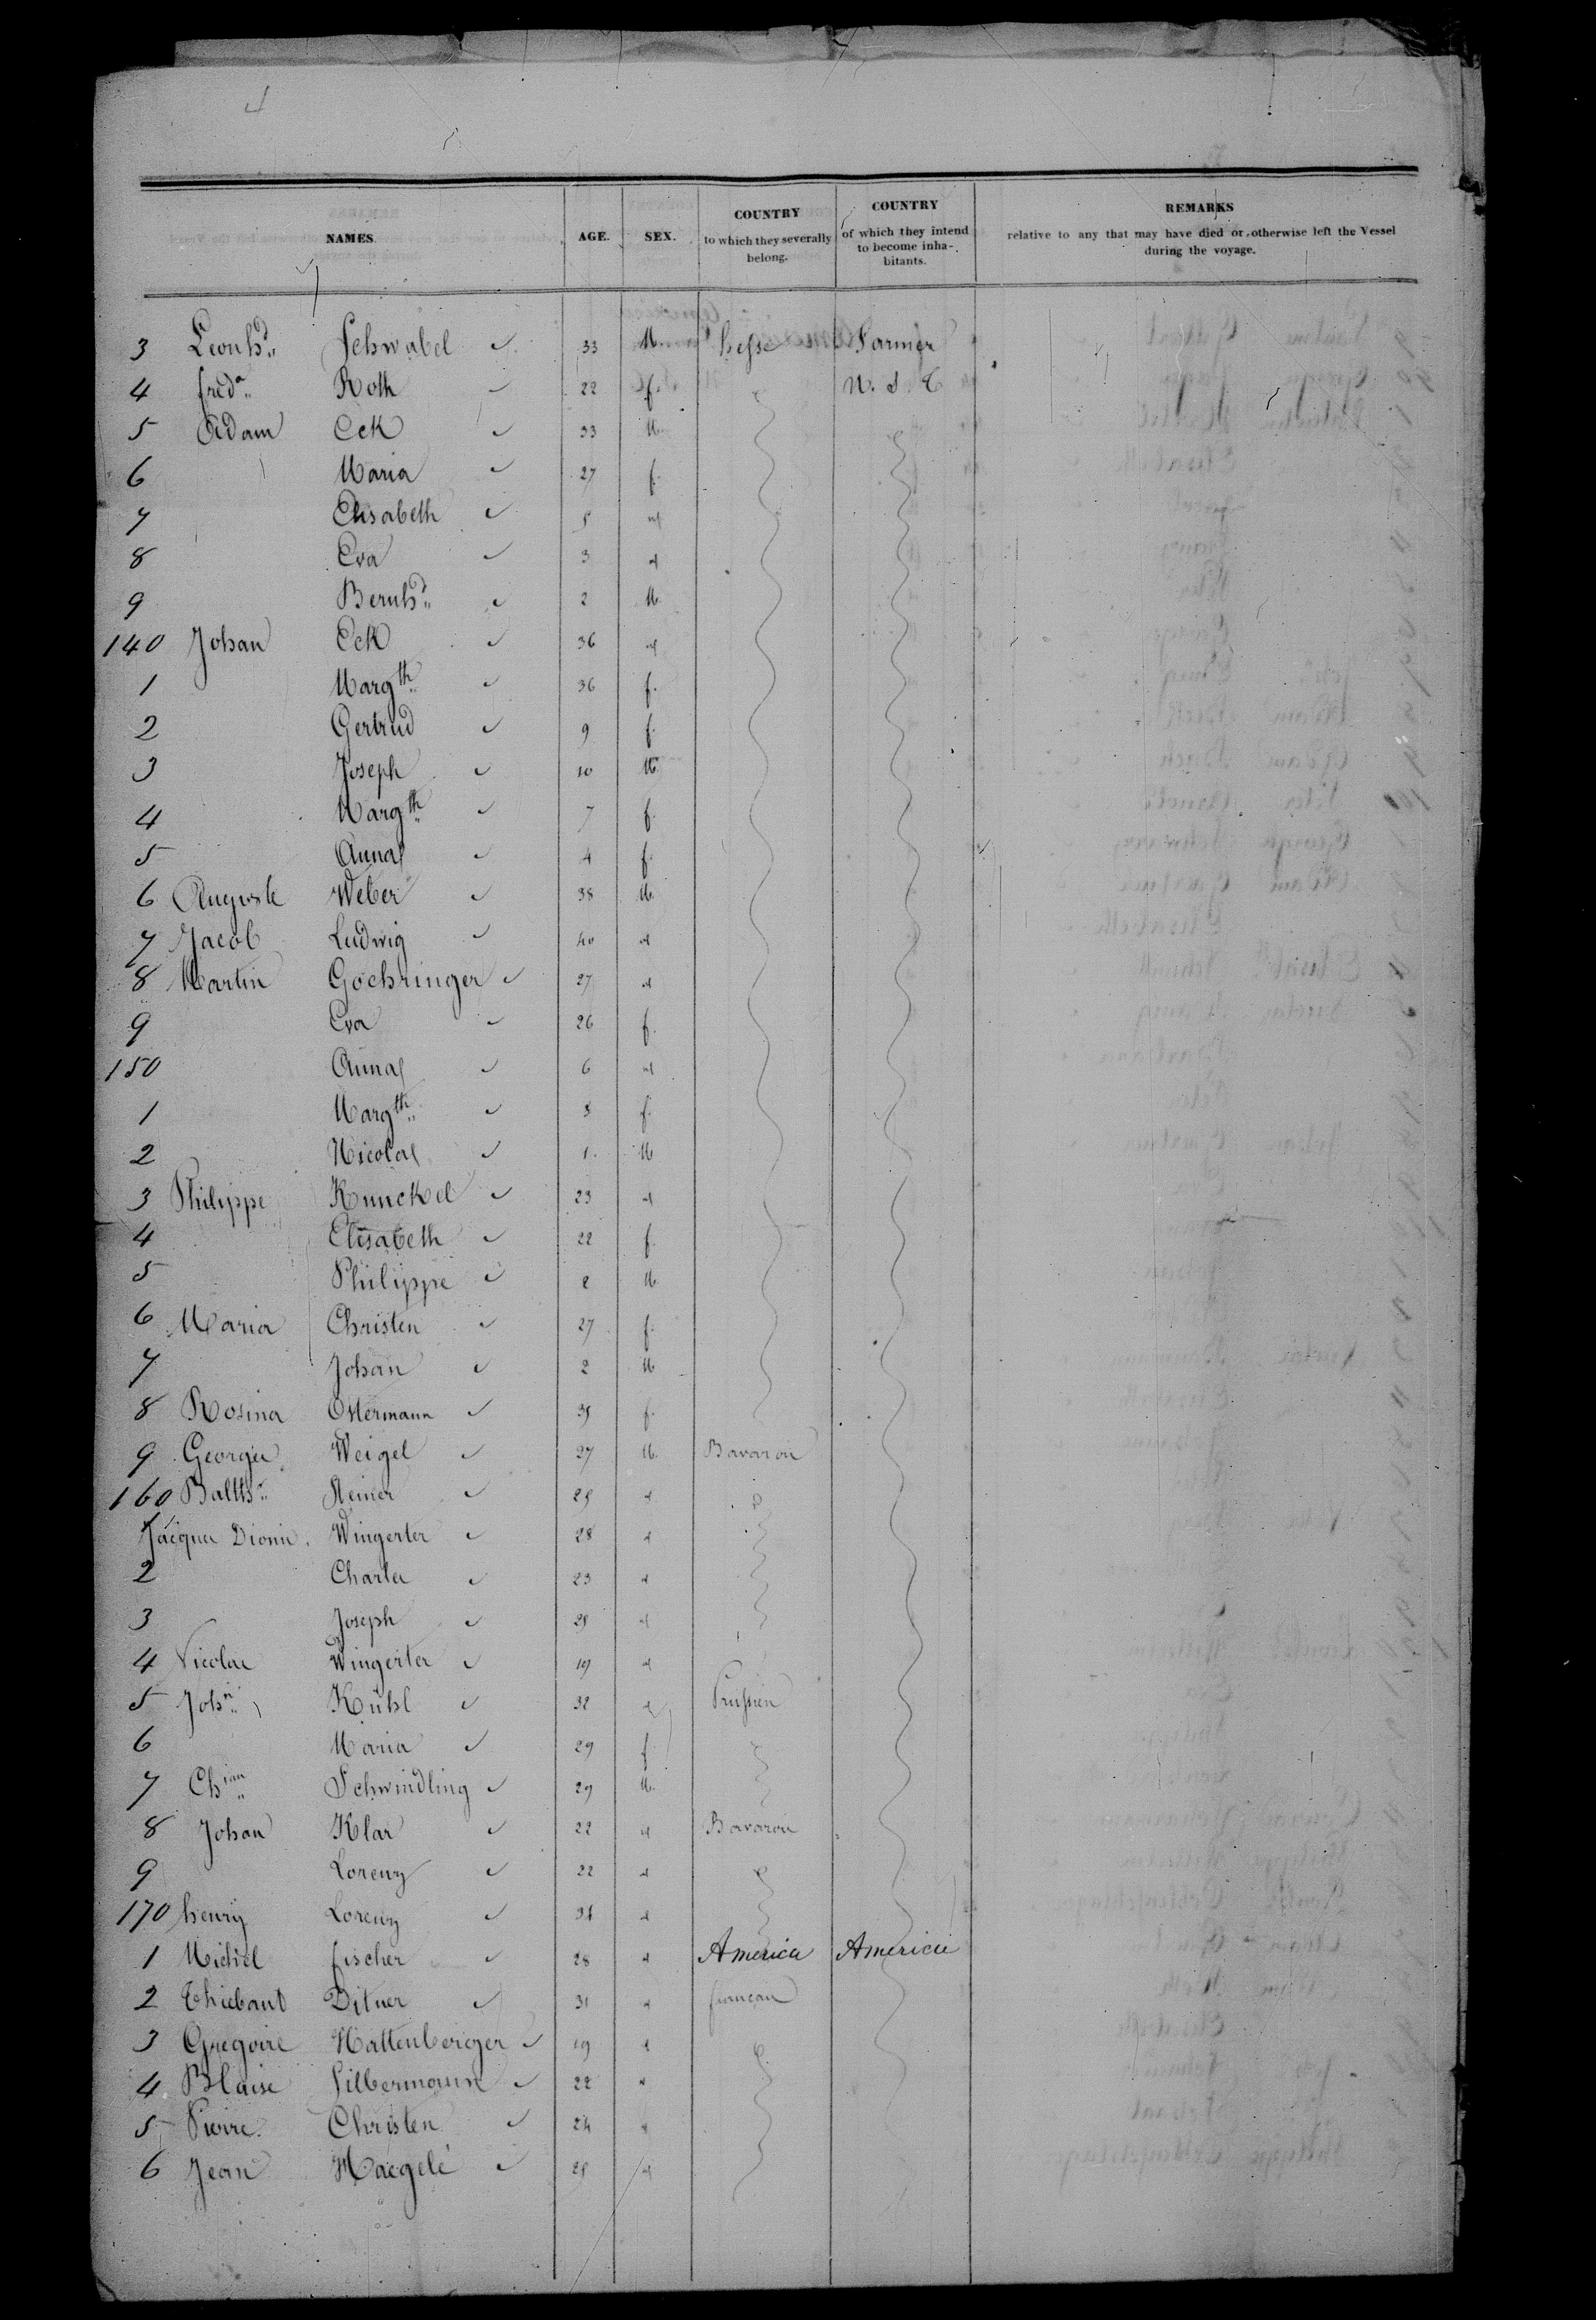 4
NAMES. AGE. SEX. COUNTRY to which they severally belong. COUNTRY of which they intend to become inhabitants. REMARKS relative to any that may have died or otherwise left the Vessel during the voyage.
3 Leonhd Schwabel 33 M. hesse Farmer
4 freda Roth 22 f. N. S. C
5 Adam Eck 33 M
6 Maria 27 f.
7 Elisabeth 5 "
8 Eva 3 "
9 Bernhd 2 M.
140 Johan Eck 36 "
1 Margth 36 f.
2 Gertrud 9 f.
3 Joseph 10 M
4 Margth 7 f.
5 Anna 4 f.
6 Auguste Weber 38 M.
7 Jacob Ludwig 40 "
8 Martin Goehringer 27 "
9 Eva 26 f.
150 Anna 6 "
1 Margth 3 f.
2 Nicolas 1 M
3 Philippe Kunckel 23 "
4 Elisabeth 22 f.
5 Philippe 2 M.
6 Maria Christen 27 f.
7 Johan 2 M
8 Rosina Ostermann 35 f.
9 Georges Weigel 27 M. Bavaroii
160 Balths Steiner 25 "
1 Jacques Dionis. Wingerter 28 "
2 Charles 23 "
3 Joseph 25 "
4 Nicolas Wingerter 19 "
5 John Kühl 32 " Prussien
6 Maria 29 f
7 Chian Schwindling 29 M.
8 Johan Klar 22 " Bavarois
9 Lorenz 22 "
170 henry Lorenz 31 "
1 Michel fischer 28 " America America
2 Thiebaut Ditner 31 " francais
3 Gregoire Hattenberger 19 "
4 Blaise Silbermann 22 "
5 Pierre Christen 24 "
6 Jean Haegelé 25 "